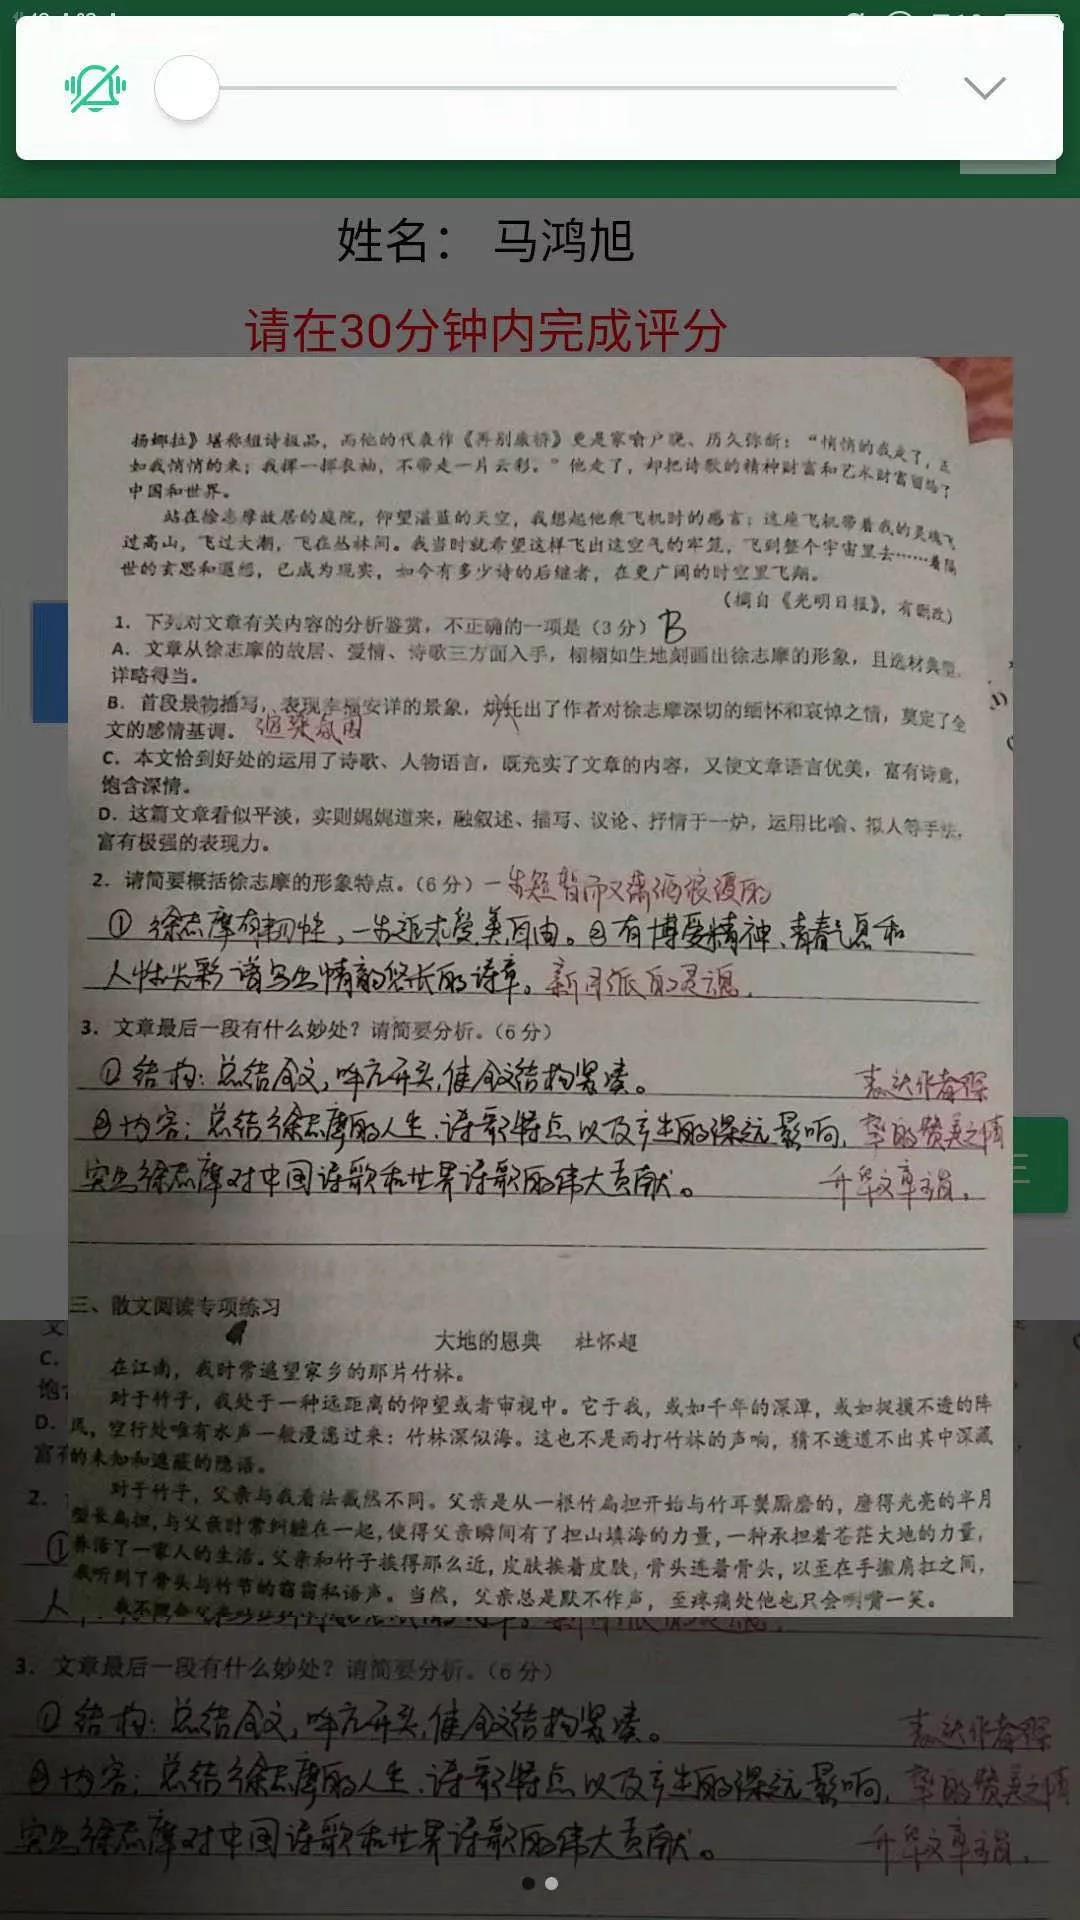 姓名： 马鸿旭
请在30分钟内完成评分
扬娜拉》堪称短诗极品，而他的代表作《再别康桥》更是家喻户晓、历久弥新：“悄悄的我走了，正
如我悄悄的来；我挥一挥衣袖，不带走一片云彩。”他走了，却把诗歌的精神财富和艺术财富留给了
中国和世界。
站在徐志摩故居的庭院，仰望湛蓝的天空，我想起他乘飞机时的感言：这座飞机带着我的灵魂飞
过高山，飞过大湖，飞在丛林间。我当时就希望这样飞出这空气的牢笼，飞到整个宇宙里去……着隔
世的玄思和遐想，已成为现实，如今有多少诗的后继者，在更广阔的时空里飞翔。
（摘自《光明日报》，有删改）
1．下列对文章有关内容的分析鉴赏，不正确的一项是（3分）B
A．文章从徐志摩的故居、爱情、诗歌三方面入手，栩栩如生地刻画出徐志摩的形象，且选材典型，
详略得当。
B．首段景物描写，表现幸福安详的景象，烘托出了作者对徐志摩深切的缅怀和哀悼之情，奠定了全
文的感情基调。
C．本文恰到好处的运用了诗歌、人物语言，既充实了文章的内容，又使文章语言优美，富有诗意，
饱含深情。
D．这篇文章看似平淡，实则娓娓道来，融叙述、描写、议论、抒情于一炉，运用比喻、拟人等手法，
富有极强的表现力。
2．请简要概括徐志摩的形象特点。（6分）一生短暂而又潇洒浪漫的
① 徐志摩有韧性，一生追求爱、美、自由。②有博爱精神、青春气息和
人性光彩谱写出情韵悠长的诗章。新月派的灵魂．
3．文章最后一段有什么妙处？请简要分析。（6分）
①结构：总结全文，呼应开头，使全文结构紧凑。 表达作者深
②内容：总结徐志摩的人生、诗歌特点以及产生的深远影响， 挚的赞美之情
突出徐志摩对中国诗歌和世界诗歌的伟大贡献。 升华文章主旨．
三、散文阅读专项练习
大地的恩典 杜怀超
在江南，我时常遥望家乡的那片竹林。
对于竹子，我处于一种远距离的仰望或者审视中。它于我，或如千年的深潭，或如捉摸不透的阵
风，空行处唯有水声一般漫漶过来：竹林深似海。这也不是雨打竹林的声响，猜不透道不出其中深藏
的未知和遮蔽的隐语。
对于竹子，父亲与我看法截然不同。父亲是从一根竹扁担开始与竹耳鬓厮磨的，磨得光亮的半月
型长扁担，与父亲时常纠缠在一起，使得父亲瞬间有了担山填海的力量，一种承担着苍茫大地的力量，
养活了一家人的生活。父亲和竹子挨得那么近，皮肤挨着皮肤，骨头连着骨头，以至在手搬肩扛之间，
我听到了骨头与竹节的窃窃私语声。当然，父亲总是默不作声，至疼痛处他也只会咧嘴一笑。
3．文章最后一段有什么妙处？请简要分析。（6分）
①结构：总结全文，呼应开头，使全文结构紧凑。 表达作者深
②内容：总结徐志摩的人生、诗歌特点以及产生的深远影响， 挚的赞美之情
突出徐志摩对中国诗歌和世界诗歌的伟大贡献。 升华文章主旨．